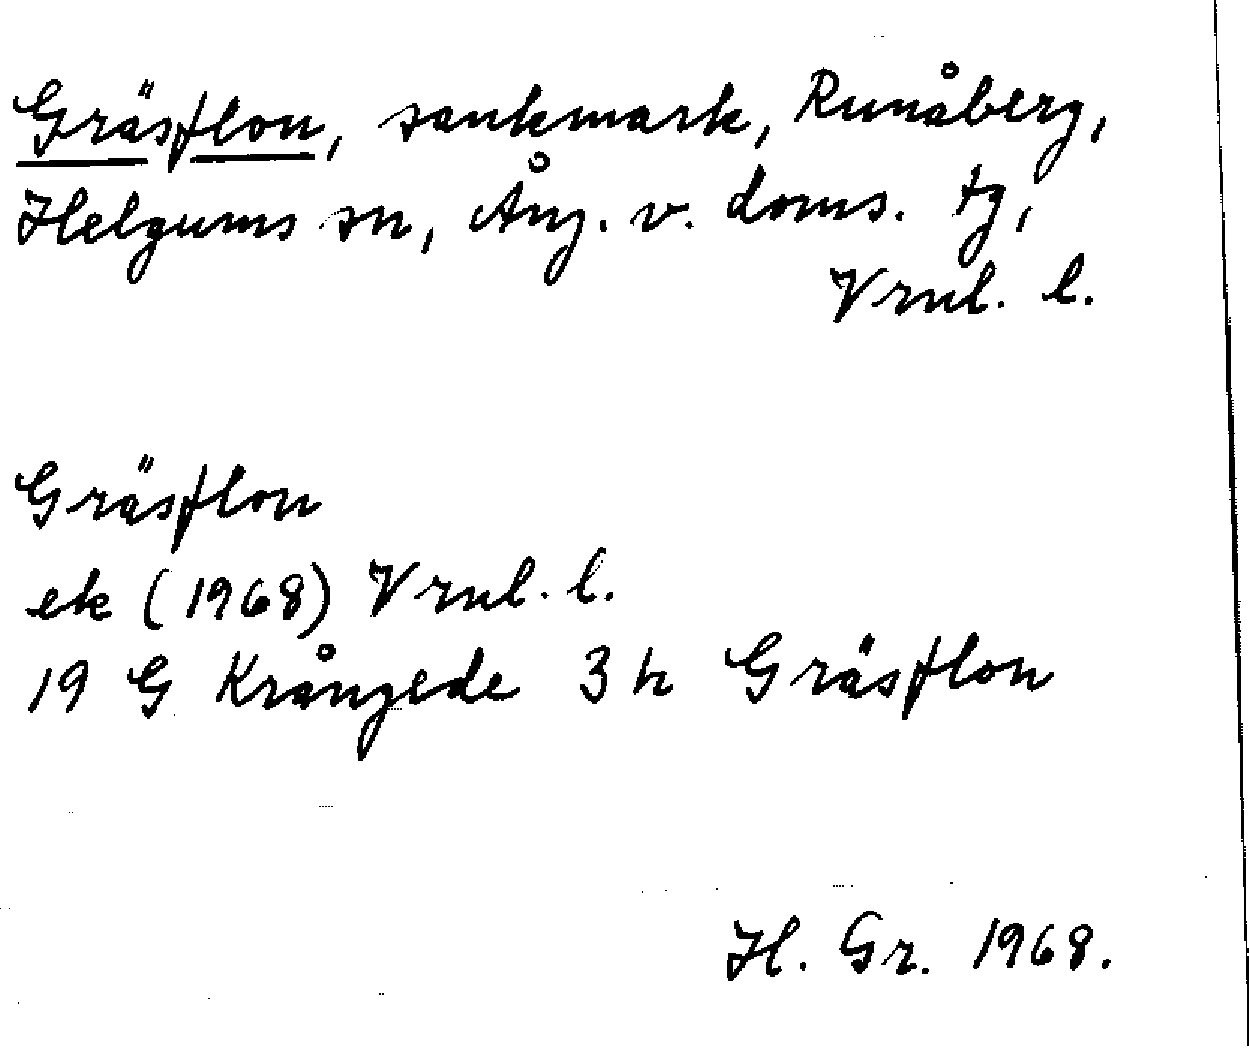 Gräsflon, sankmark, Runåberg,
Helgums sn, Ång. v. doms. tg,
Vrnl. l.
Gräsflon
ek (1968) Vrnl. l.
19 G Krångede 3 h Gräsflon
H. Gr. 1968.